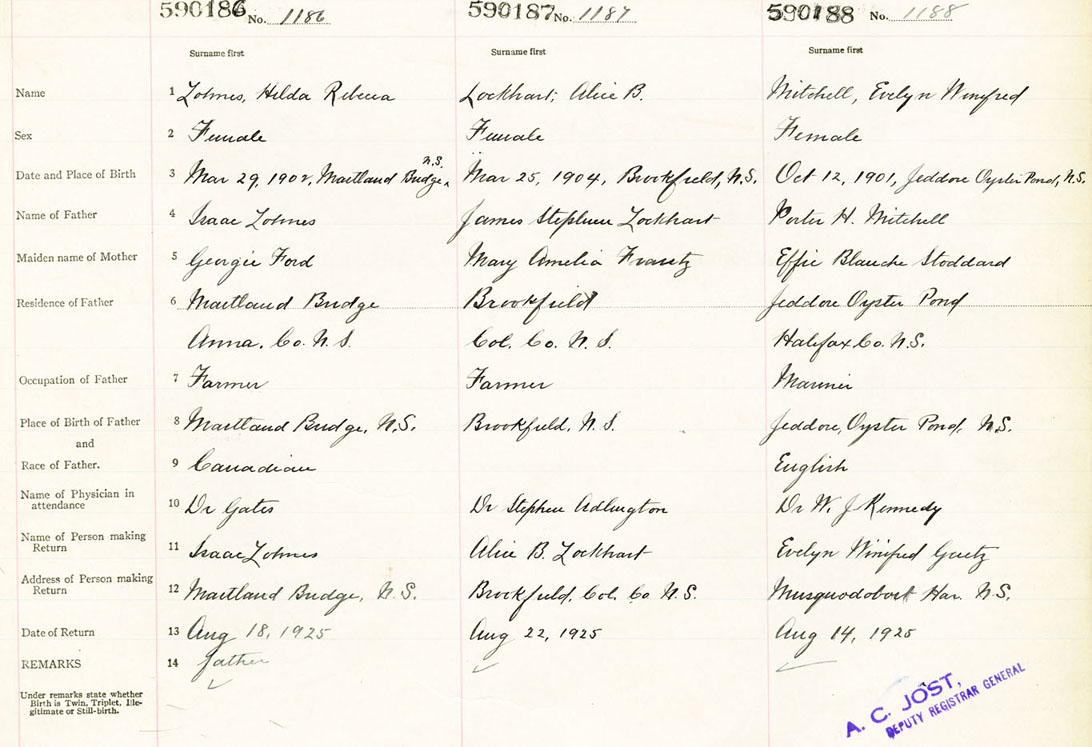 590186 No. 1186 590187 No. 1187 590188 No. 1188
Surname first Surname first Surname first
Name 1 Lohnes, Hilda Rebecca Lockhart, Alice B. Mitchell, Evelyn Winifred
Sex 2 Female Female Female
N.S.
Date and Place of Birth 3 Mar 29, 1902, Maitland Bridge, Mar 25, 1904, Brookfield, N.S. Oct 12, 1901, Jeddore Oyster Pond, N.S.
Name of Father 4 Isaac Lohnes James Stephen Lockhart Porter H. Mitchell
Maiden name of Mother 5 Georgie Ford Mary Amelia Frautz Effie Blanche Stoddard
Residence of Father 6 Maitland Bridge Brookfield Jeddore Oyster Pond
Anna. Co. N.S. Col. Co. N.S. Halifax Co. N.S.
Occupation of Father 7 Farmer Farmer Mariner
Place of Birth of Father 8 Maitland Bridge, N.S. Brookfield, N.S. Jeddore, Oyster Pond, N.S.
and
Race of Father. 9 Canadian English
Name of Physician in
attendance 10 Dr Gates Dr Stephen Adlington Dr W. J Kennedy
Name of Person making
Return 11 Isaac Lohnes Alice B. Lockhart Evelyn Winifred Guetz
Address of Person making
Return 12 Maitland Bridge, N.S. Brookfield, Col. Co N.S. Musquodoboit Har. N.S.
Date of Return 13 Aug 18, 1925 Aug 22, 1925 Aug 14, 1925
REMARKS 14 father
Under remarks state whether
Birth is Twin, Triplet, Ille-
gitimate or Still-birth.
A. C. JOST,
DEPUTY REGISTRAR GENERAL